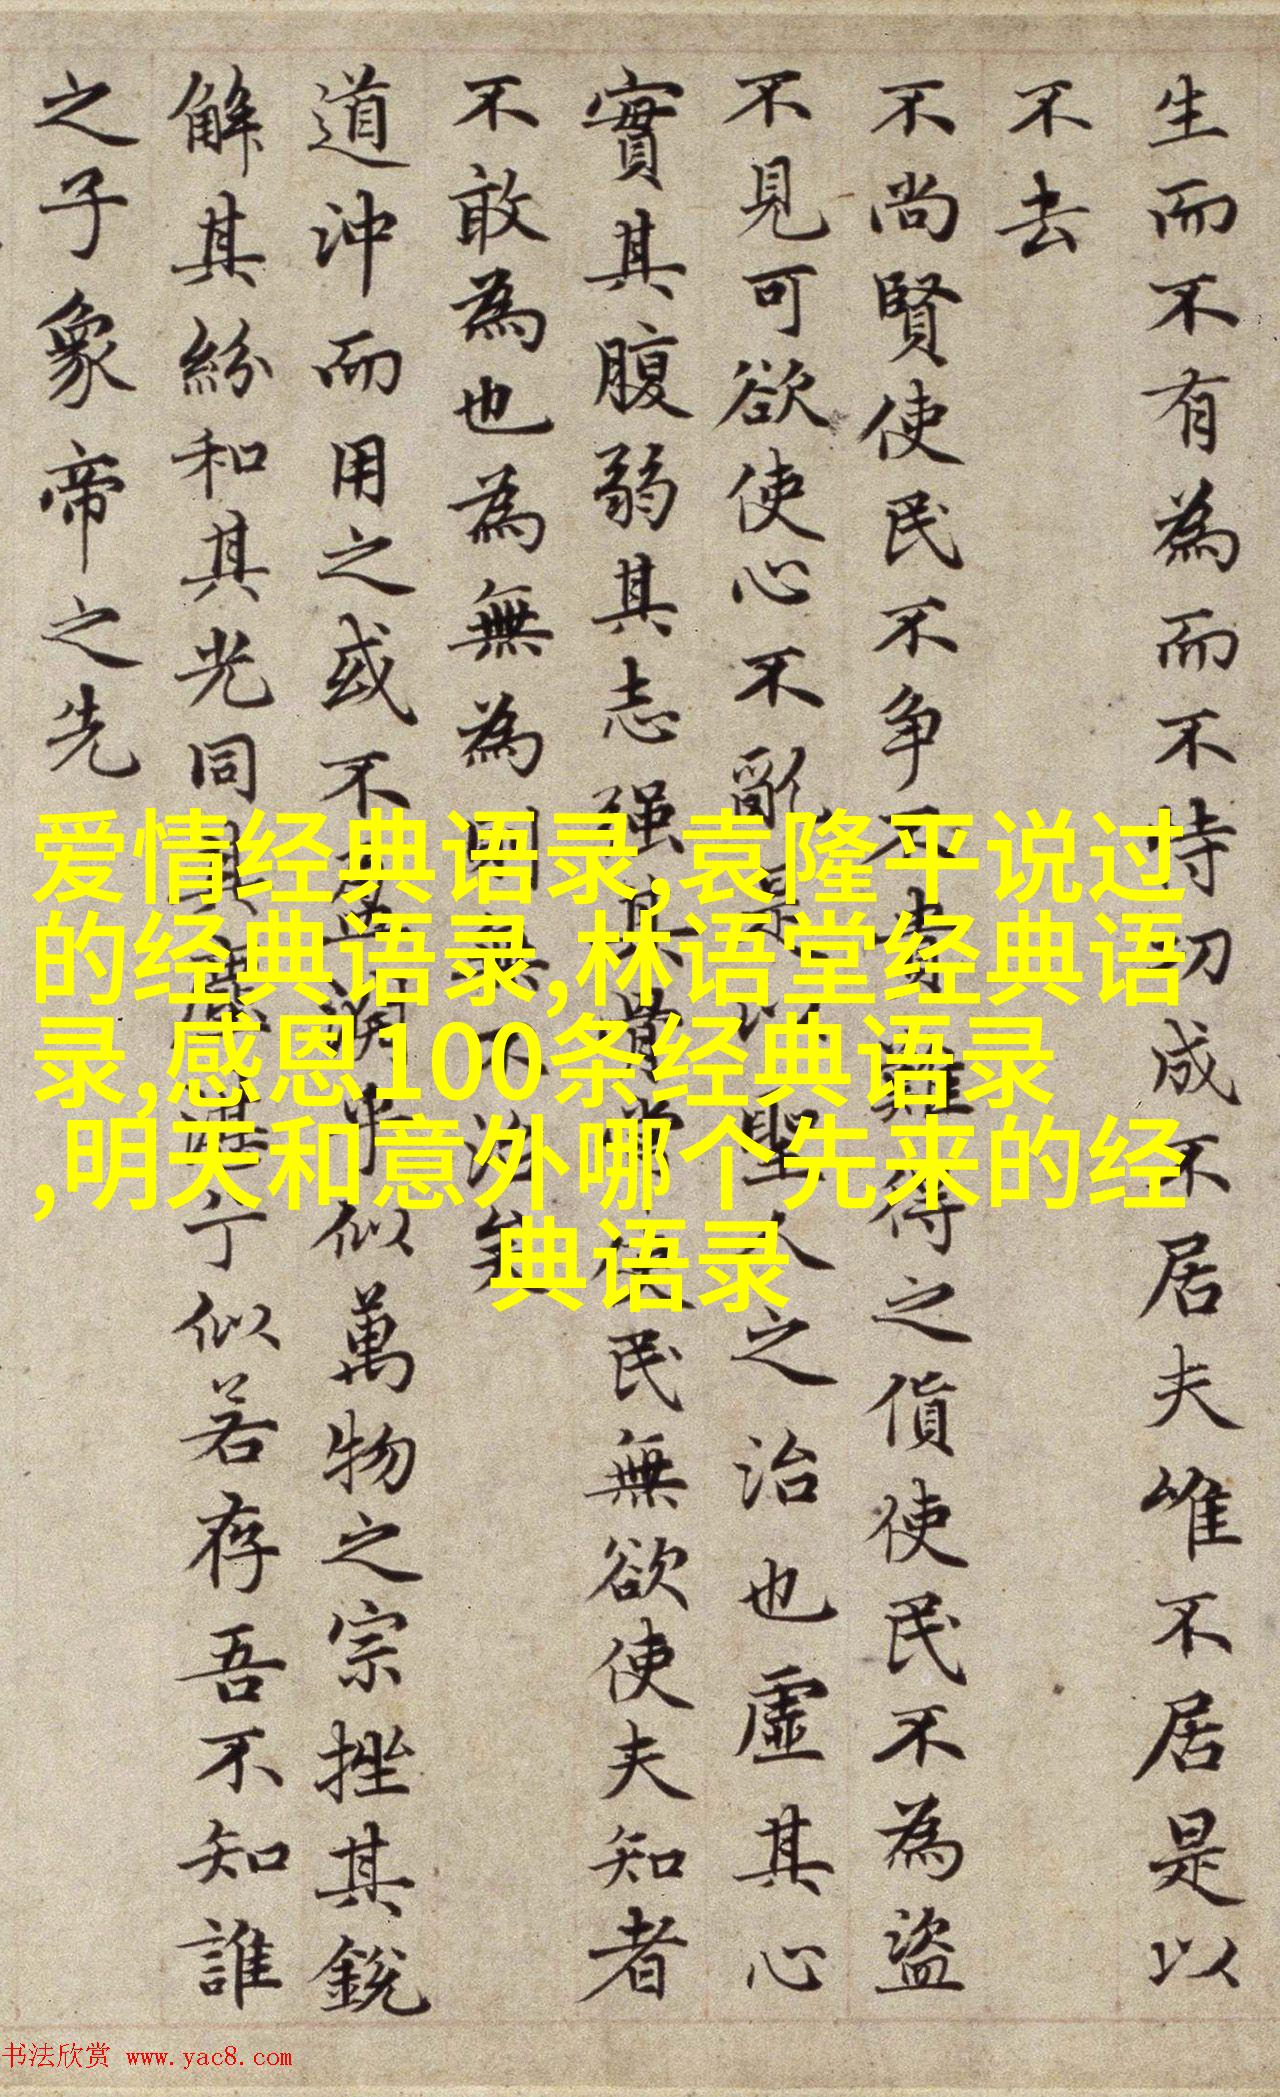 生而不有為而不恃功成不居夫唯不居是以
不去
不尚賢使民不争不貴難得之貨使民不為盜
不見可欲使心不亂是以聖人之治也虛其心
實其腹弱其志强其骨常使民無欲使夫知者
不敢為也為無為則無不治矣
道沖而用之或不盈淵乎似萬物之宗挫其銳
解其紛和其光同其塵湛兮似若存吾不知誰
之子象帝之先
爱情经典语录,袁隆平说过
的经典语录,林语堂经典语
录,感恩100条经典语录
,明天和意外哪个先来的经
典语录
书法欣赏 www.yac8.com